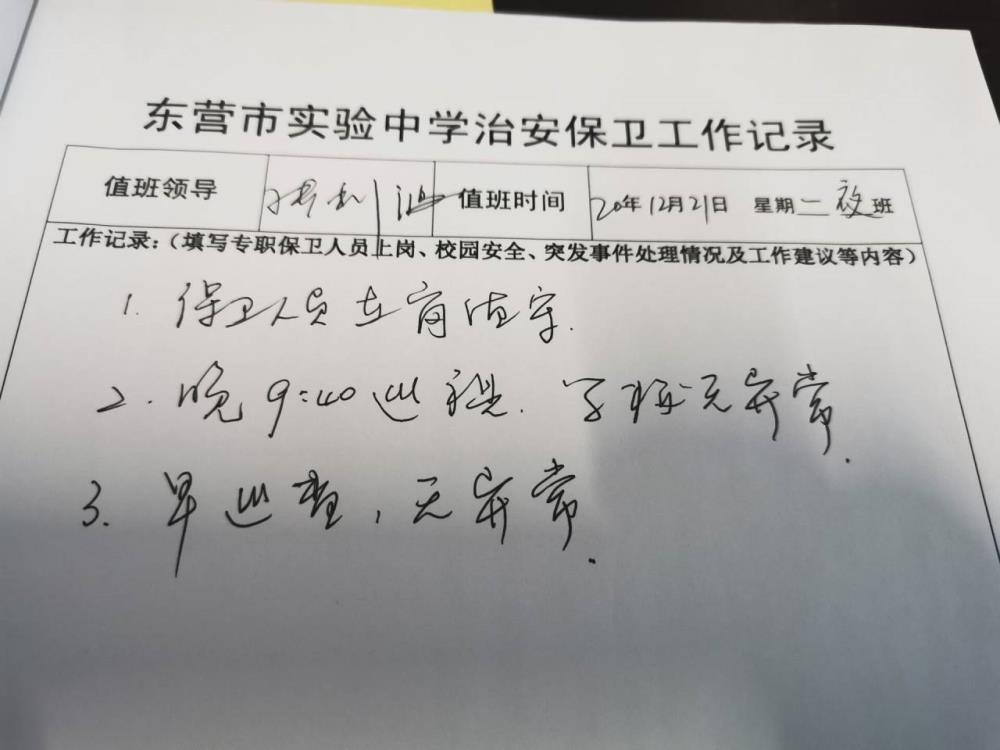 东营市实验中学治安保卫工作记录
值班领导 值班时间 20年12月21日 星期二夜班
工作记录:(填写专职保卫人员上岗、校园安全、突发事件处理情况及工作建议等内容)
1. 保卫人员在岗值守.
2. 晚9:40巡视. 学校无异常.
3. 早巡查,无异常.